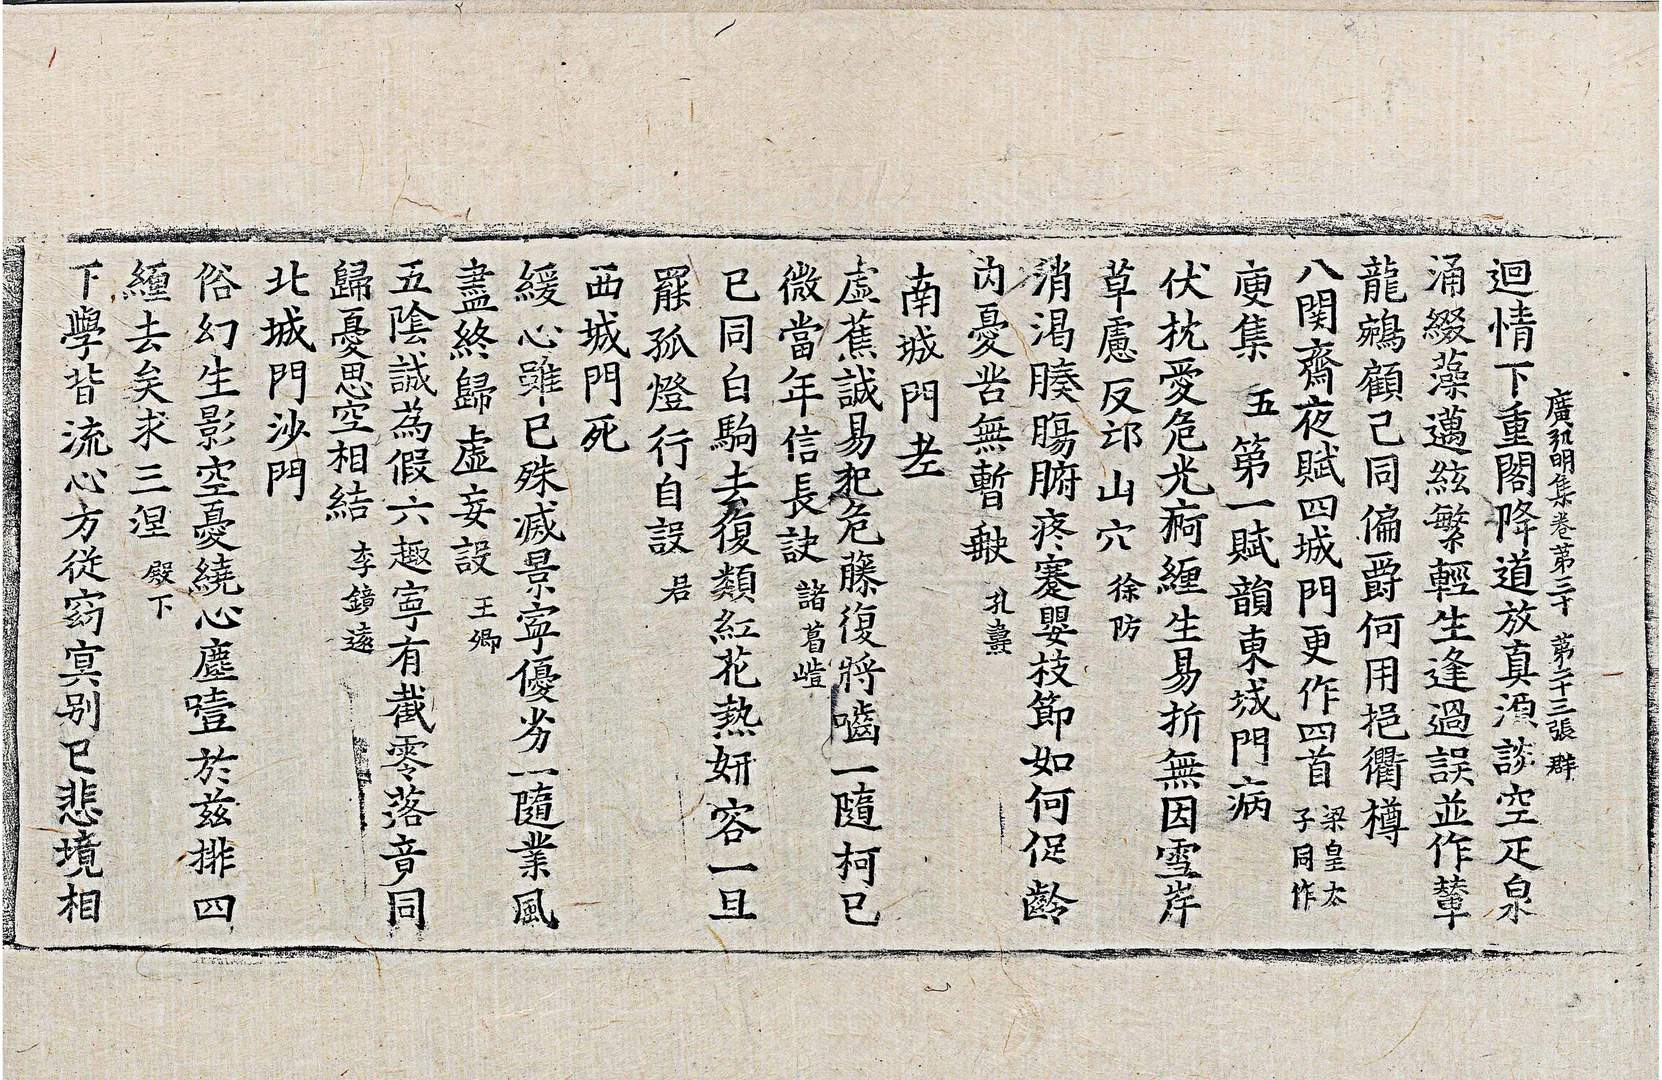 廣弘明集卷第三十 第二十三張 群
迴情下重閣降道放真源談空疋泉
涌綴藻邁絃繁輕生逢過誤並作輦
龍鵷顧己同偏爵何用挹衢樽
八関齋夜賦四城門更作四首 梁皇太子同作
庾集 五 第一賦韻東城門病
伏枕愛危光痾纏生易折無因雪岸
草慮反邙山穴 徐防
消渴腠腸腑疼蹇嬰枝節如何促齡
內憂苦無暫歇 孔燾
南城門老
虛蕉誠易犯危藤復將嚙一隨柯已
微當年信長訣 諸葛嵦
已同白駒去復類紅花熱妍容一旦
罷孤燈行自設 君
西城門死
緩心雖已殊滅景寧優劣一隨業風
盡終歸虛妄設 王卿
五陰誠為假六趣寧有截零落竟同
歸憂思空相結 李鏡遠
北城門沙門
俗幻生影空憂繞心塵曀於兹排四
纏去矣求三涅 殿下
下學昔流心方従窈㝠别已悲境相